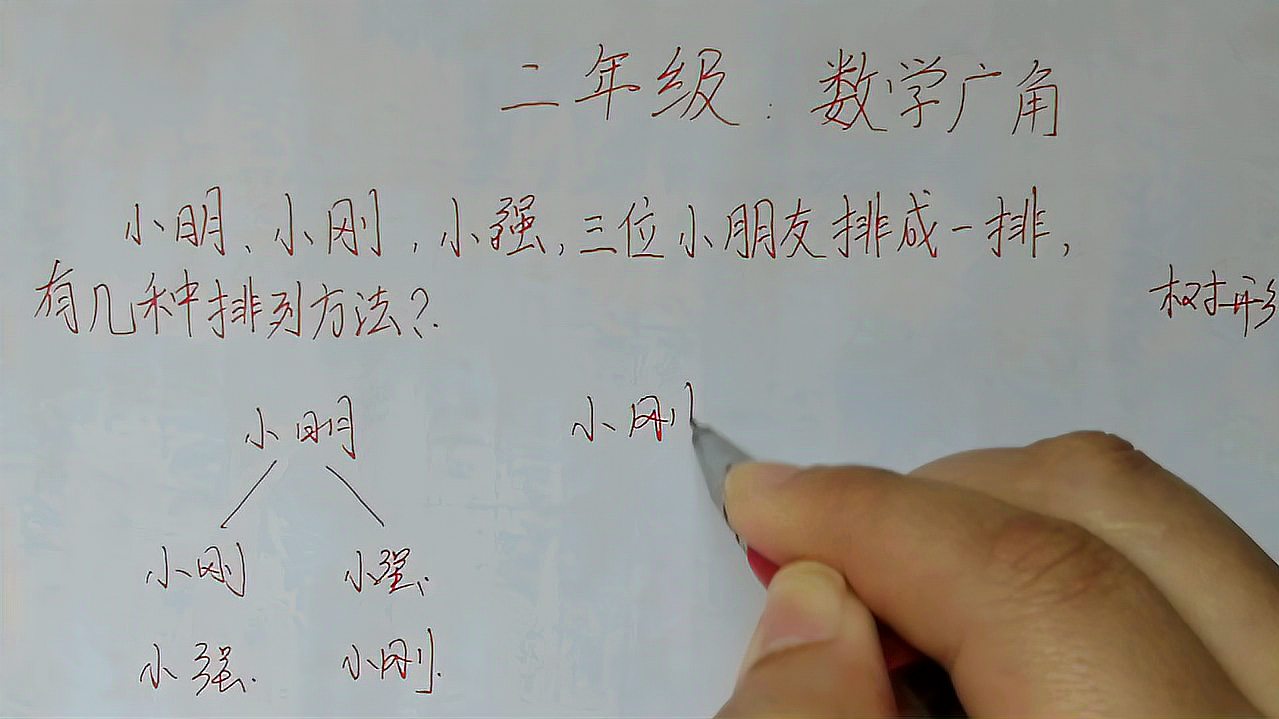 二年级:数学广角
小明、小刚,小强,三位小朋友排成一排,
有几种排列方法?
树形
小明
小刚
小刚 小强.
小强. 小刚.